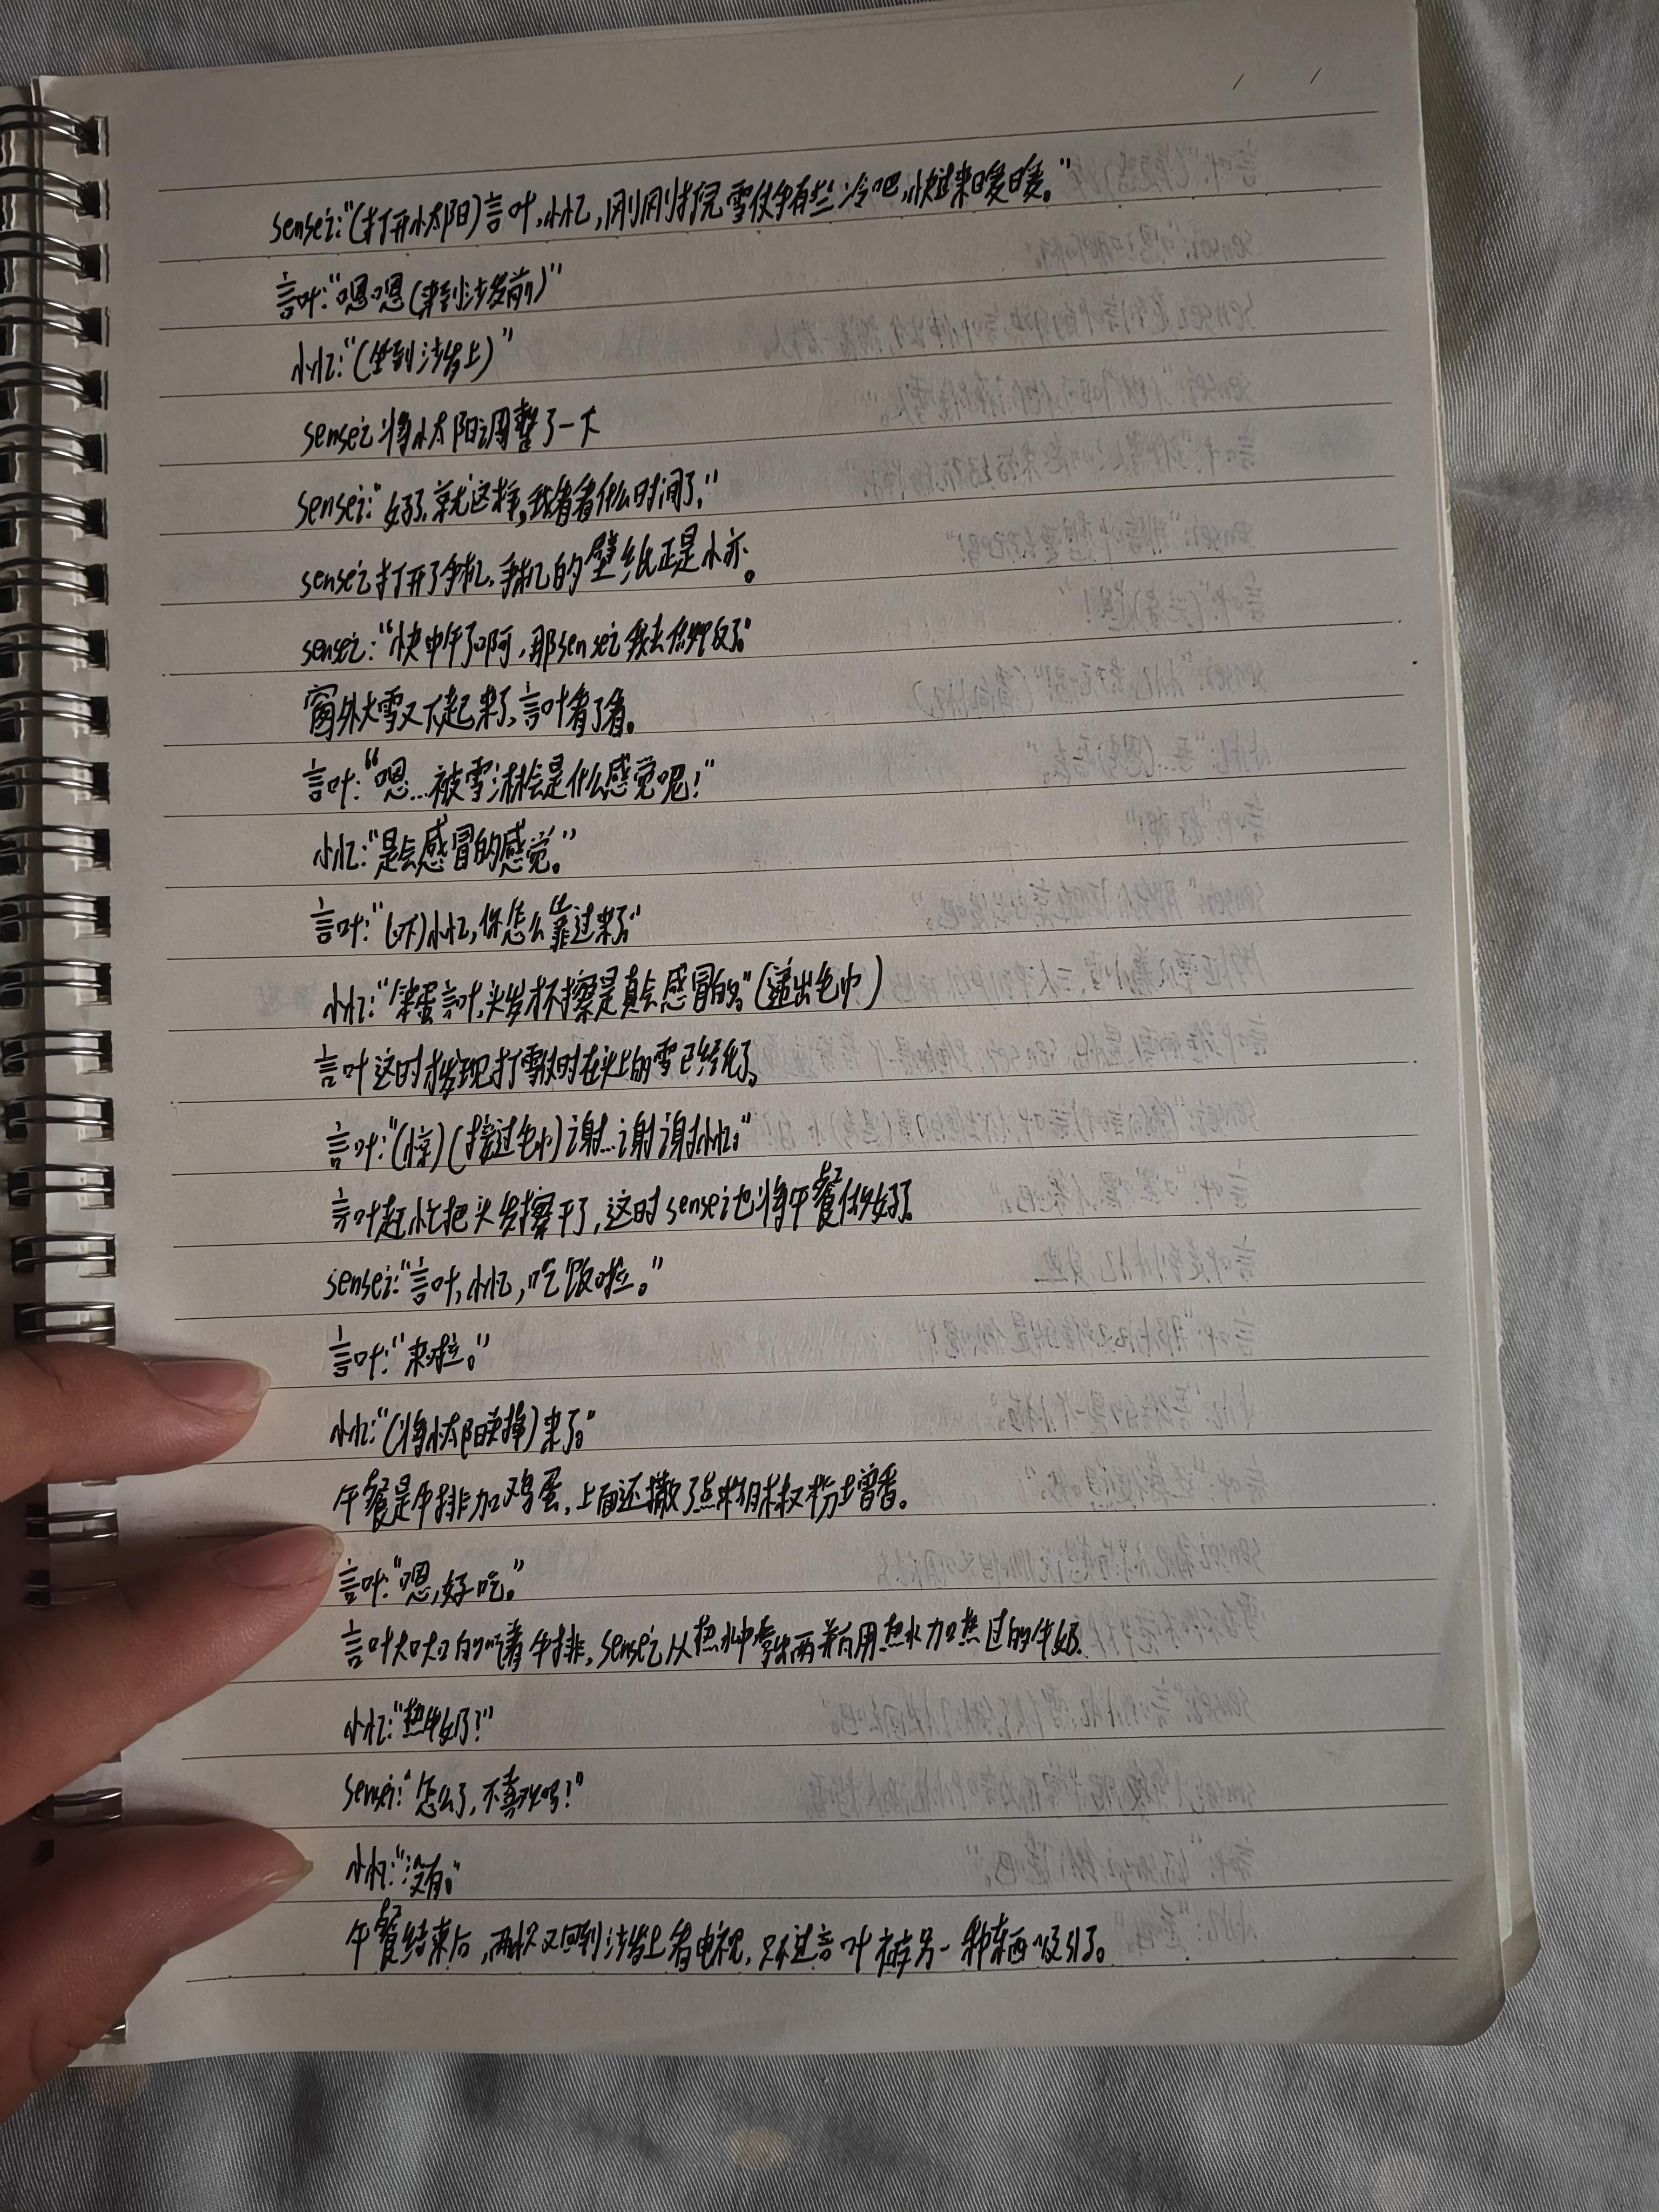 sensei:“(打开小太阳)言叶,小忆,刚刚打完雪仗有些冷吧,快过来暖暖。”
言叶:“嗯嗯(来到沙发前)”
小忆:“(坐到沙发上)”
sensei将小太阳调整了一下
sensei:“好了,就这样,我看看什么时间了,”
sensei打开了手机,手机的壁纸正是小亦。
sensei:“快中午了啊,那sensei我去做饭了。”
窗外大雪又下起来了,言叶看了看。
言叶:“嗯...被雪淋会是什么感觉呢?”
小忆:“是会感冒的感觉。”
言叶:“(吓)小忆,你怎么靠过来了”
小忆:“笨蛋言叶,头发不擦是真会感冒的。”(递出毛巾)
言叶这时才发现打雪仗时在头上的雪已经化了。
言叶:“(惊)(接过毛巾)谢...谢谢小忆。”
言叶赶忙把头发擦干了,这时sensei也将午餐做好了。
sensei:“言叶,小忆,吃饭啦。”
言叶:“来啦。”
小忆:“(将小太阳关掉)来了。”
午餐是牛排加鸡蛋,上面还撒了点粉增香。
言叶:“嗯,好吃。”
言叶大口大口的吃着牛排,sensei从热水中拿出两瓶用热水加热过的牛奶.
小忆:“热牛奶?”
sensei:“怎么了,不喜欢吗?”
小忆:“没有。”
午餐结束后,两人又回到沙发上看电视,只不过言叶被另一种东西吸引了。